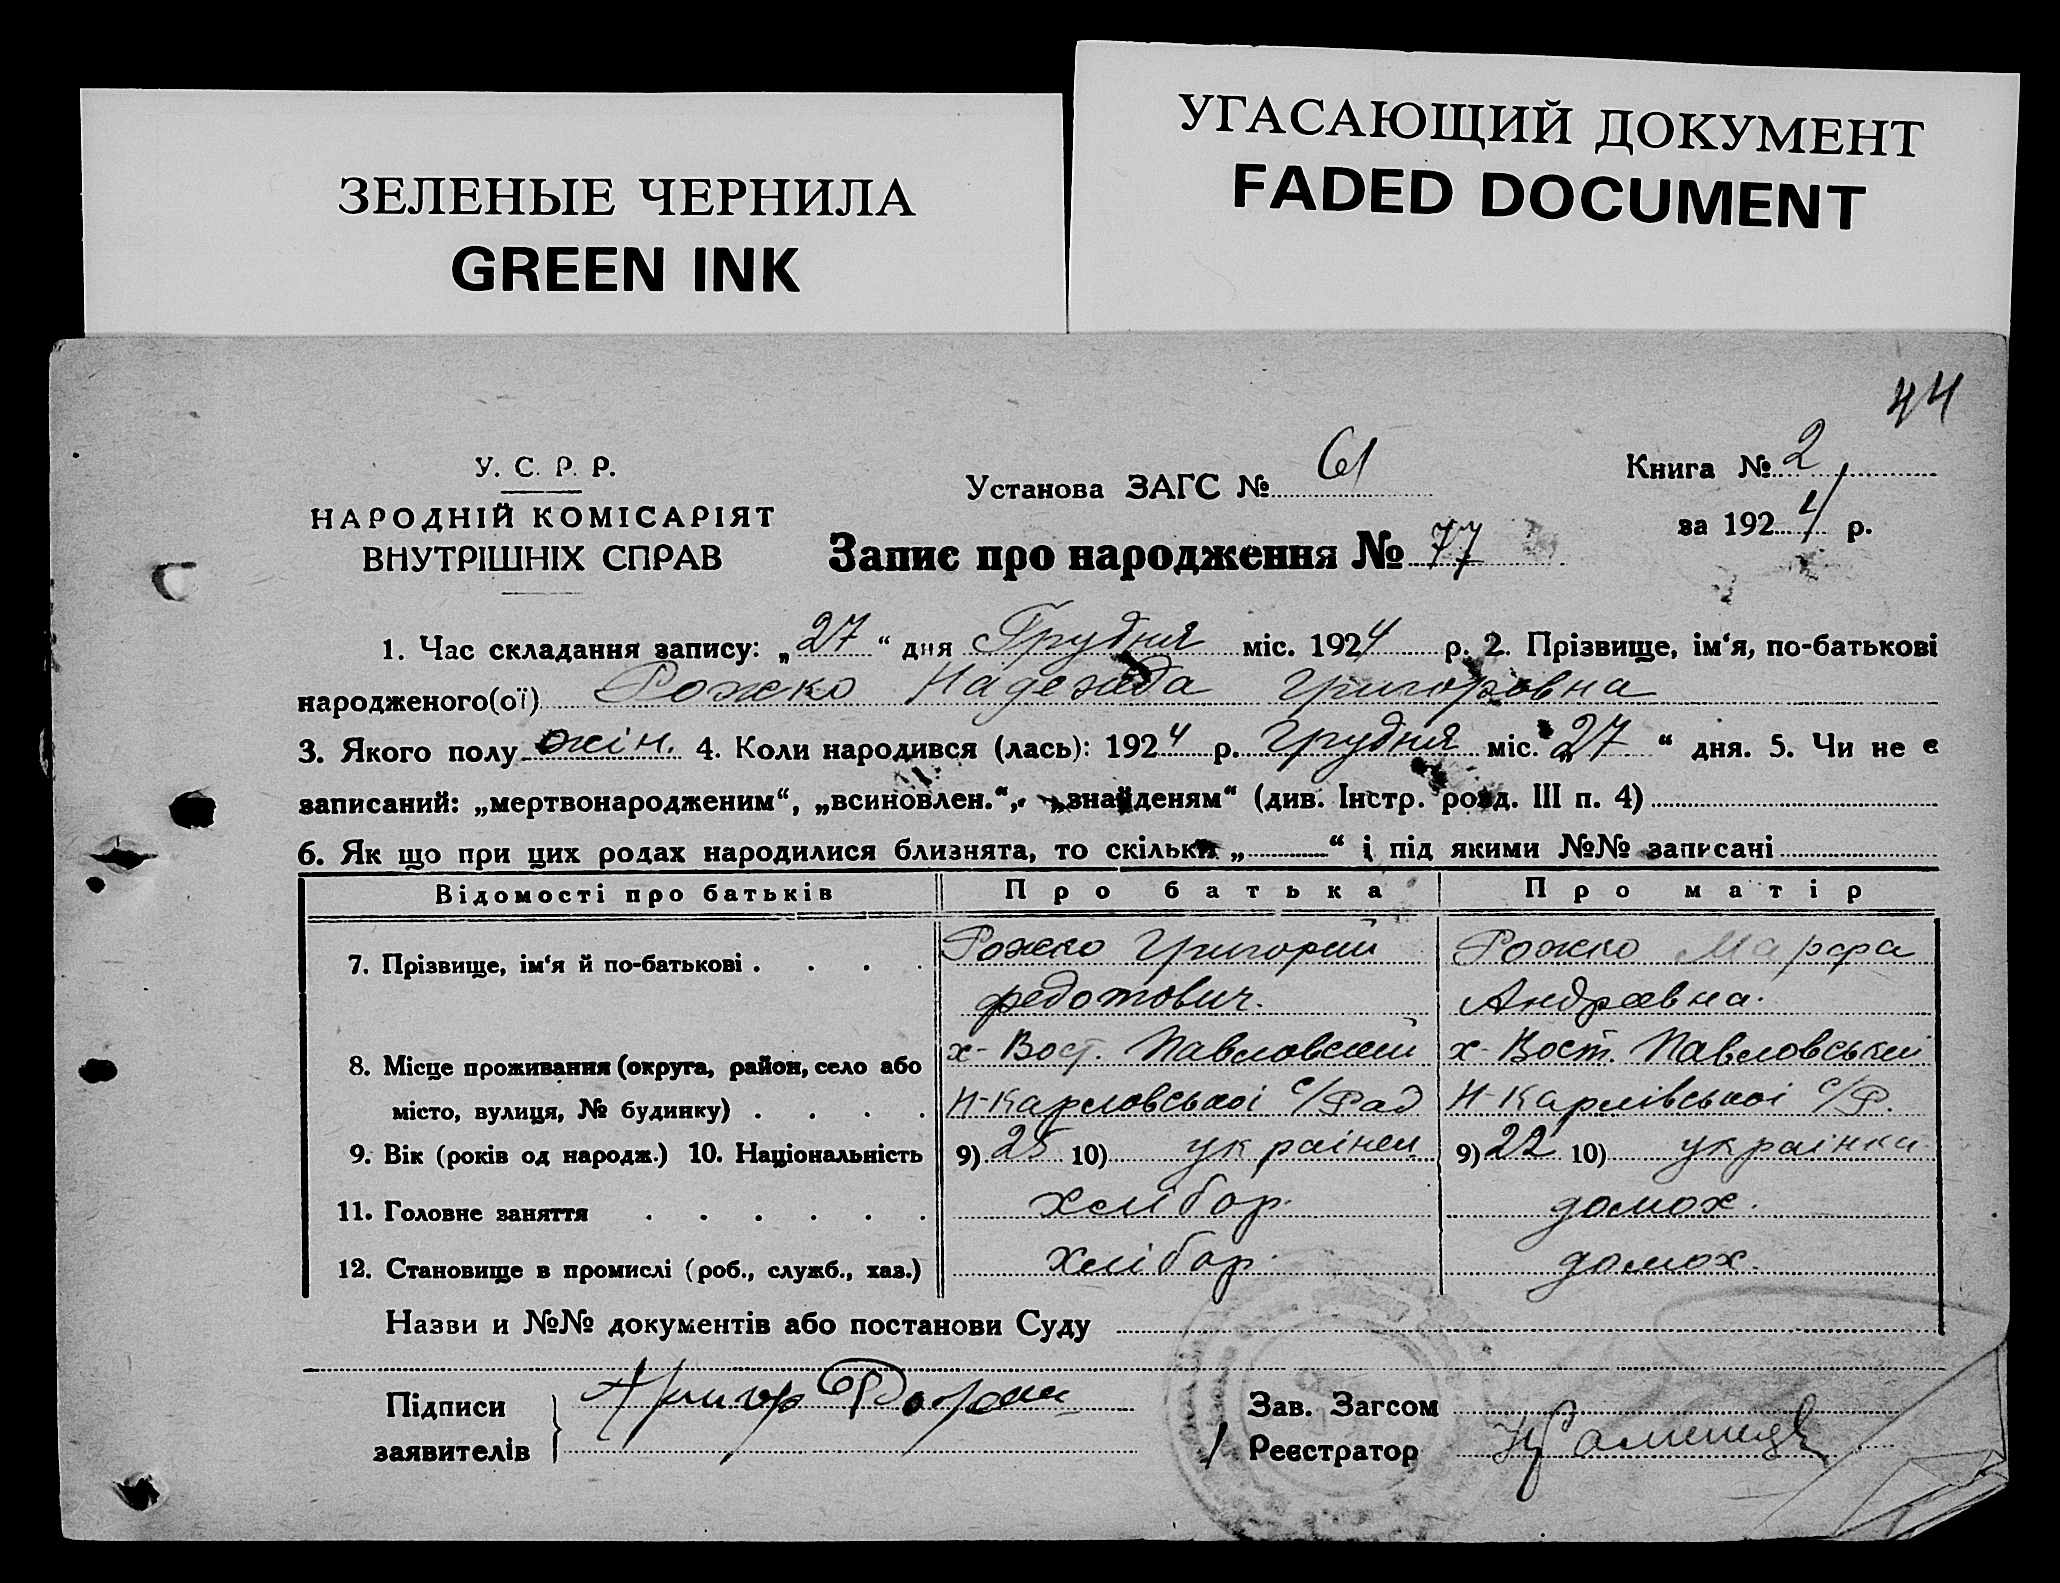 УГАСАЮЩИЙ ДОКУМЕНТ
FADED DOCUMENT
ЗЕЛЕНЫЕ ЧЕРНИЛА
GREEN INK
44
У. С. Р. Р.
НАРОДНІЙ КОМІСАРІЯТ
ВНУТРІШНІХ СПРАВ
Установа ЗАГС № 61
Книга № 2
за 1924 р.
Запис про народження № 77
1. Час складання запису: „27“ дня Грудня міс. 1924 р. 2. Прізвище, ім‘я, по-батькові
народженого(ої) Рожко Надежда Григоровна
3. Якого полу жін. 4. Коли народився (лась): 1924 р. Грудня міс. „27“ дня. 5. Чи не є
записаний: „мертвонародженим“, „всиновлен.“, „знайденям“ (див. Інстр. розд. III п. 4)
6. Як що при цих родах народилися близнята, то скільки „ “ і під якими №№ записані
Відомості про батьків Про батька Про матір
7. Прізвище, ім‘я й по-батькові . . . . Рожко Григорий Рожко Марфа
федотович. Андрєвна.
8. Місце проживання (округа, район, село або х- Вост. Павловский х- Вост. Павловський
місто, вулиця, № будинку) . . . . Н-Карловської с/Рад Н-Карлівської с/Р.
9. Вік (років од народж.) 10. Національність 9) 25 10) українец 9) 22 10) українка
11. Головне заняття . . . . . . хлібор. домох.
12. Становище в промислі (роб., служб., хаз.) хлібор. домох.
Назви и №№ документів або постанови Суду
Підписи
заявителів
Зав. Загсом
Реєстратор